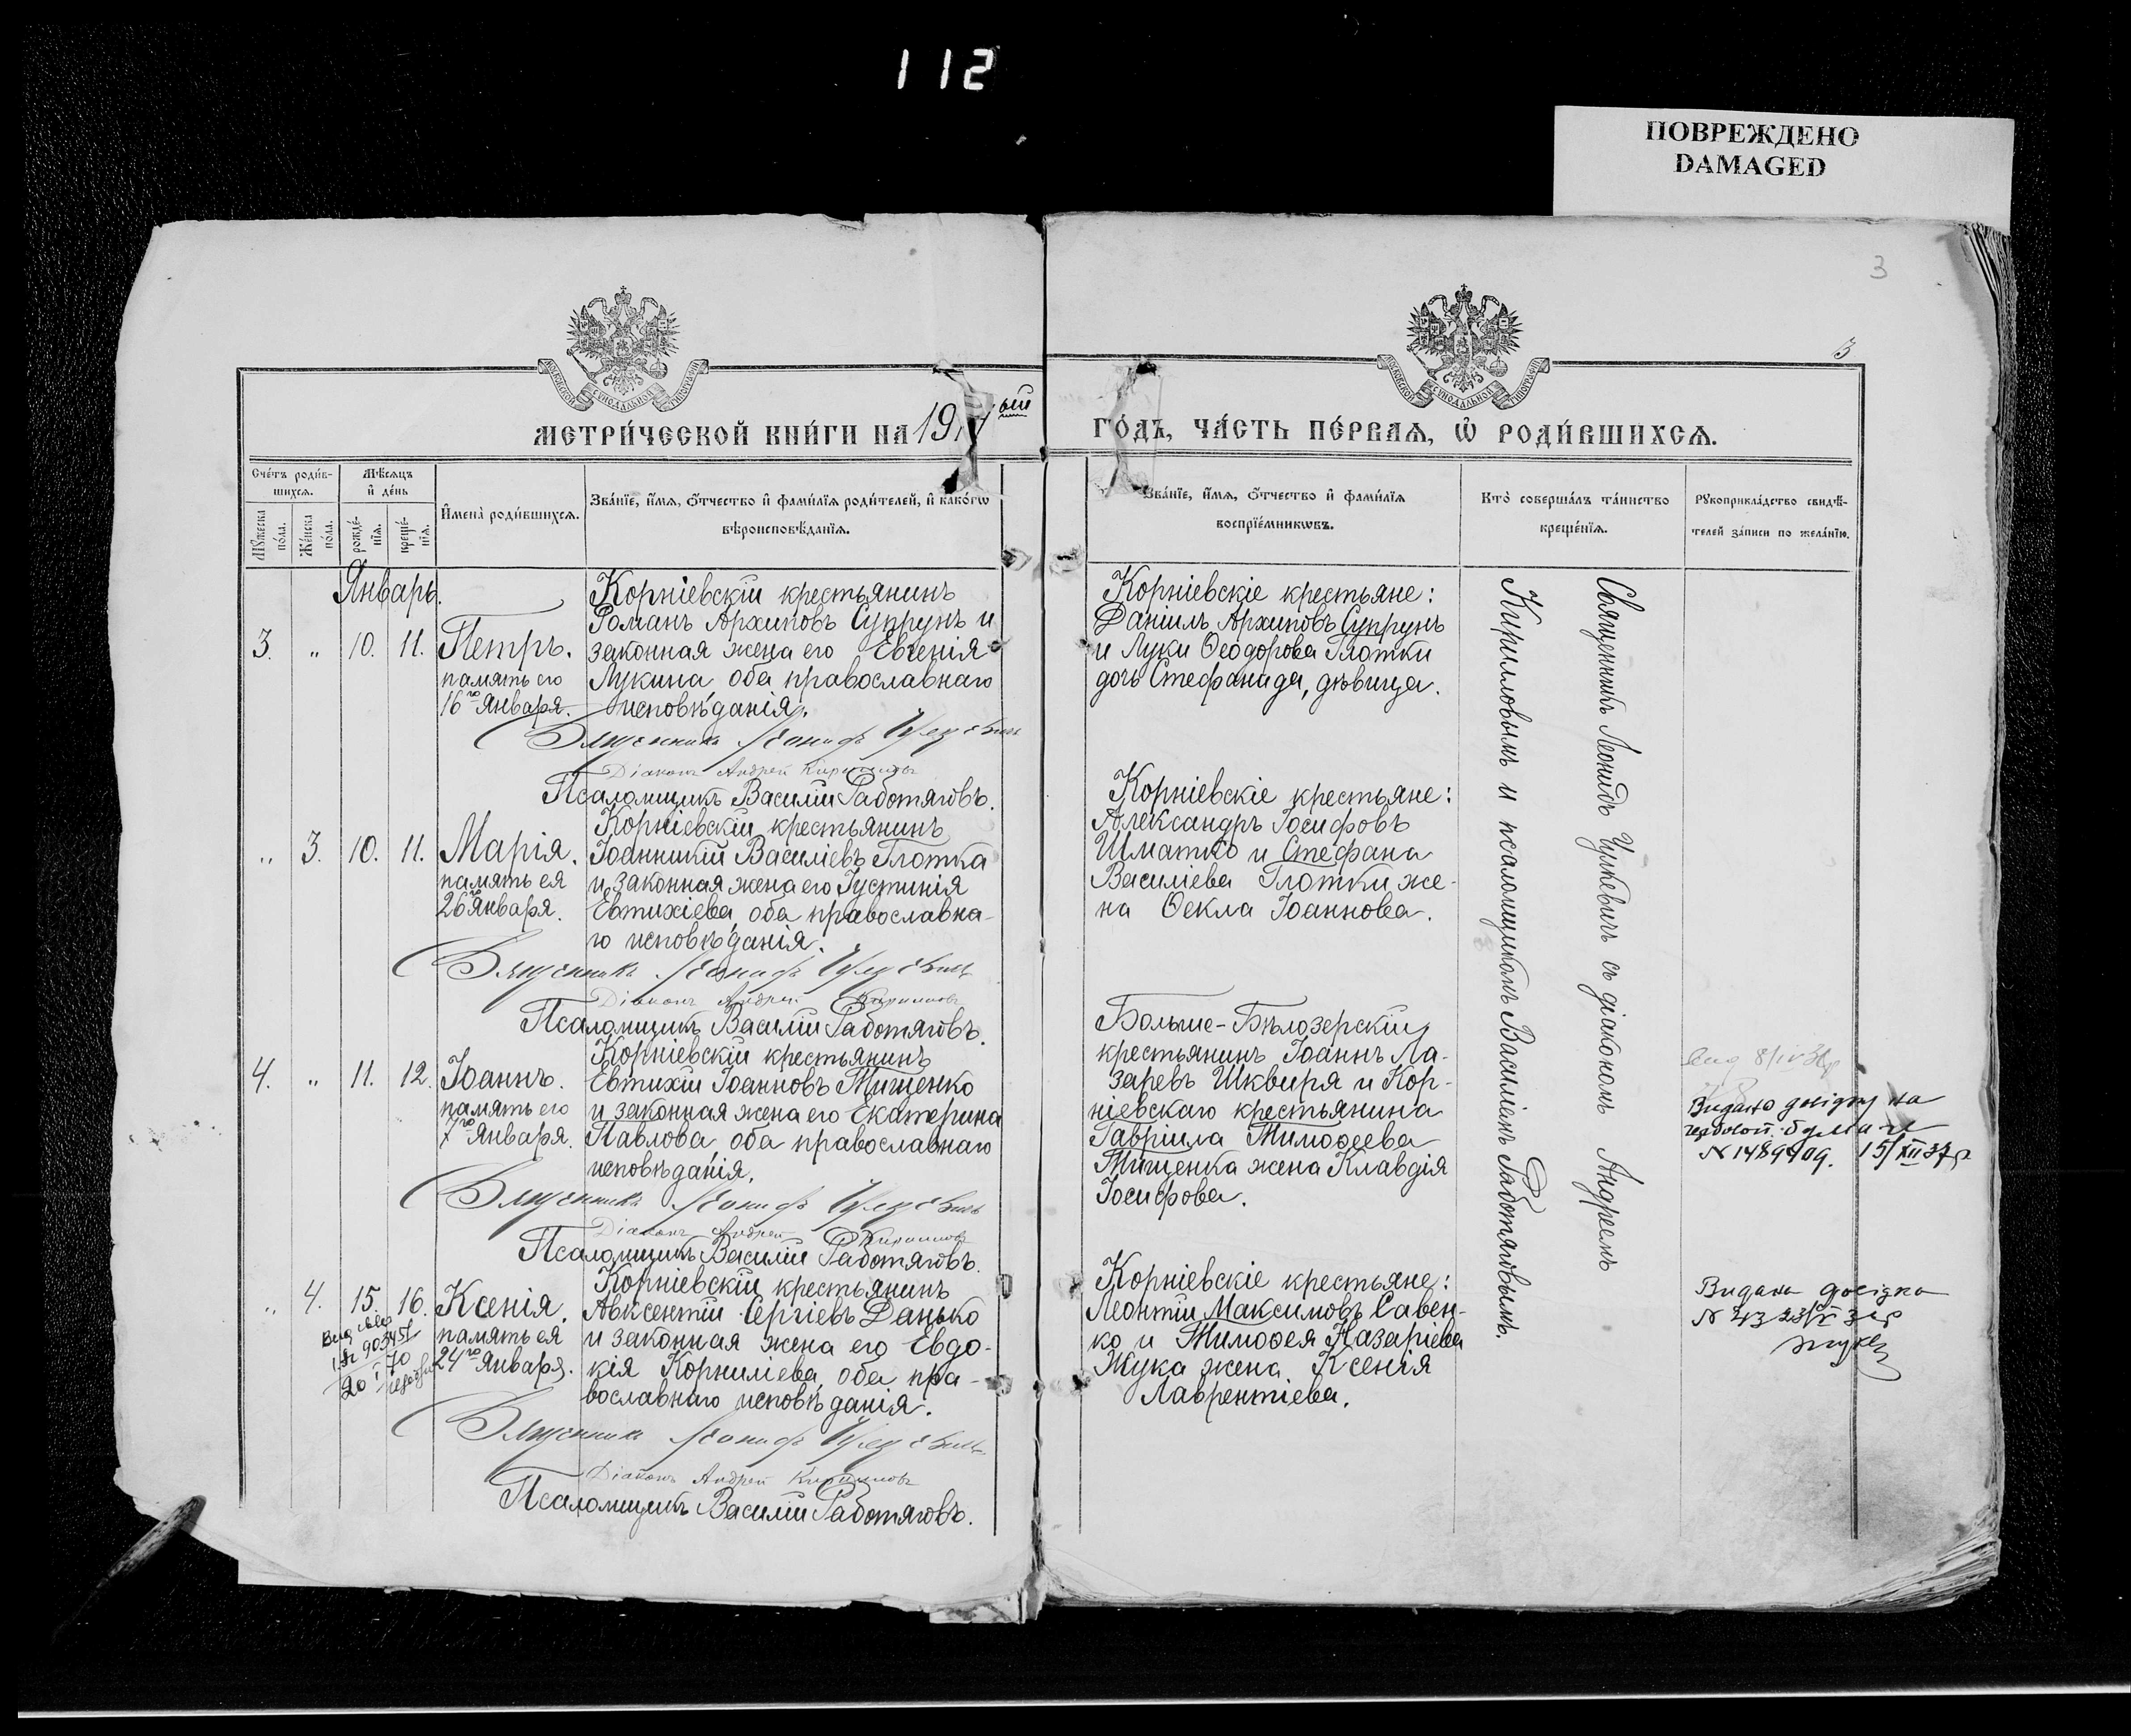 112
ПОВРЕЖДЕНО
DAMAGED
3
3
МЕТРИ́ЧЕСКОЙ КНИ́ГИ НА 19 ый
ГО́ДЪ, ЧА́СТЬ ПЕ́РВАѦ, Ѡ РОДИ́ВШИХСѦ.
Сче́тъ роди́в-
шихсѧ.
Мѣ́сѧцъ
и҆ де́нь
Мꙋ́жеска по́ла.
Же́нска по́ла.
рожде́-
нїѧ.
креще́-
нїѧ.
И҆мена̀ роди́вшихсѧ.
Зва́нїе, и҆́мѧ, ѻ҆́тчество и҆ фами́лїѧ роди́телей, и҆ како́гѡ
вѣроисповѣ́данїѧ.
Зва́нїе, и҆́мѧ, ѻ҆́тчество и҆ фами́лїѧ
воспрїе́мникѡвъ.
Кто̀ соверша́лъ та́инство
креще́нїѧ.
Рꙋкоприкла́дство свидѣ́-
телей за́писи по жела́нїю.
Январь.
3. " 10. 11. Петръ.
память его
16го Января.
Корніевскій крестьянинъ
Романъ Архиповъ Супрунъ и
законная жена его Евгенія
Лукина, оба православнаго
исповѣданія.
Священникъ Леонидъ Цулкевичъ
Діаконъ Андрей Кириловъ
Псаломщикъ Василій Работяговъ.
Корніевскіе крестьяне:
Даніилъ Архиповъ Супрунъ
и Луки Ѳеодорова Глотки
дочь Стефанида, дѣвица.
" 3. 10. 11. Марія.
память ея
26го Января.
Корніевскій крестьянинъ
Іоанникій Василіевъ Глотка
и законная жена его Іустинія
Евтихіева, оба православна-
го исповѣданія.
Священникъ Леонидъ
Діаконъ Андрей Кириловъ
Псаломщикъ Василій Работяговъ.
Корніевскіе крестьяне:
Александръ Іосифовъ
Шматко и Стефана
Василіева Глотки же-
на Ѳекла Іоаннова.
4. " 11. 12. Іоаннъ.
память его
7го Января.
Корніевскій крестьянинъ
Евтихій Іоанновъ Тищенко
и законная жена его Екатерина
Павлова, оба православнаго
исповѣданія.
Священникъ Леонидъ
Діаконъ Андрей Кириловъ
Псаломщикъ Василій Работяговъ.
Больше-Бѣлозерскій
крестьянинъ Іоаннъ Ла-
заревъ Шквиря и Кор-
ніевскаго крестьянина
Гавріила Тимоѳеева
Тищенка жена Клавдія
Іосифова.
Видано довідку на
гербовой бумаге
N 1489409. 15/XII 37 р
" 4. 15. 16. Ксенія.
память ея
24го Января.
20 I 70
Корніевскій крестьянинъ
Авксентій Сергіевъ Данько
и законная жена его Евдо-
кія Корниліева, оба пра-
вославнаго исповѣданія.
Священникъ Леонидъ
Діаконъ Андрей Кириловъ
Псаломщикъ Василій Работяговъ.
Корніевскіе крестьяне:
Леонтій Максимовъ Савен-
ко и Тимоѳея Назаріева
Жука жена Ксенія
Лаврентіева.
Видана довідка
Священникъ Леонидъ съ діакономъ Андреемъ
Кириловымъ и псаломщикомъ Василіемъ Работяговымъ.